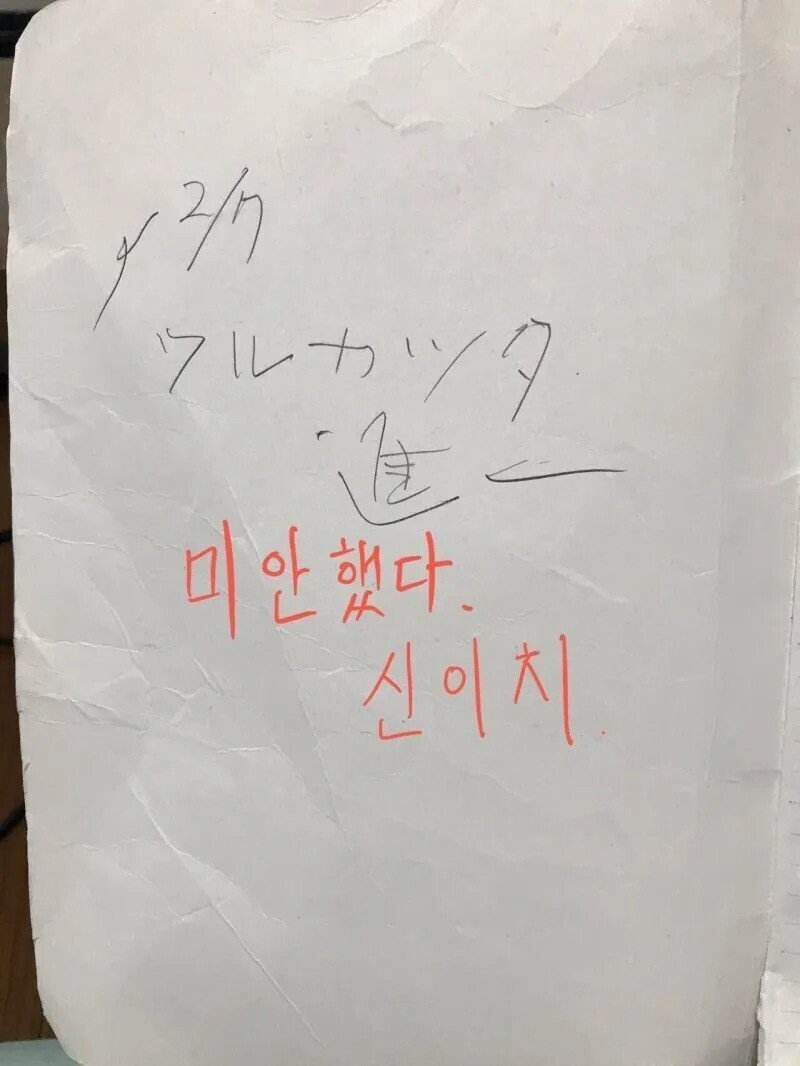 2/7
ワルカッタ
進一
미안했다.
신이치.